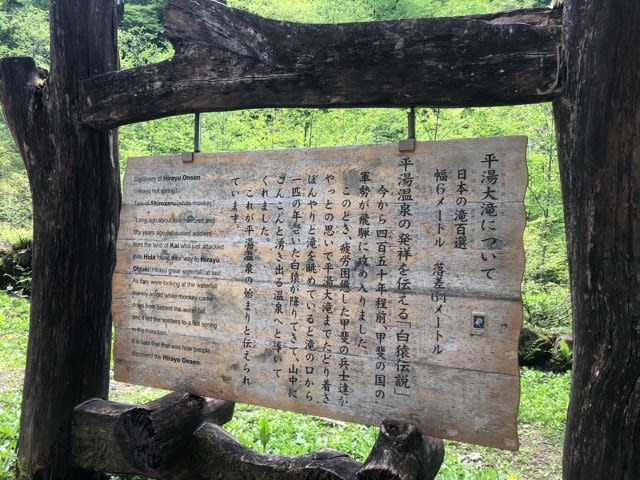 平湯大滝について
日本の滝百選
幅6メートル　落差64メートル
平湯温泉の発祥を伝える「白猿伝説」
今から四百五十年程前、甲斐の国の
軍勢が飛騨に攻め入りました。
このとき、疲労困憊した甲斐の兵士達が
やっとの思いで平湯大滝までたどり着き
ぼんやりと滝を眺めていると滝の口から
一匹の年老いた白猿が降りてきて、山中に
こんこんと湧き出る温泉へと導いて
くれました。
これが平湯温泉の始まりと伝えられ
ています。
Discovery of Hirayu Onsen
(Hirayu hot spring)
Tale of Shirozaru(white monkey)
Long ago about four hundred and
fifty years ago,exhausted soldiers
from the land of Kai who just attacked
into Hida found their way to Hirayu
Ohtaki(Hirayu great waterfall)at last.
As they were looking at the waterfall
blankly,an old white monkey came
down from behind the water fall
and it led the soldiers to a hot spring
in the mountain.
It is said that that was how people
discoverd the Hirayu Onsen.